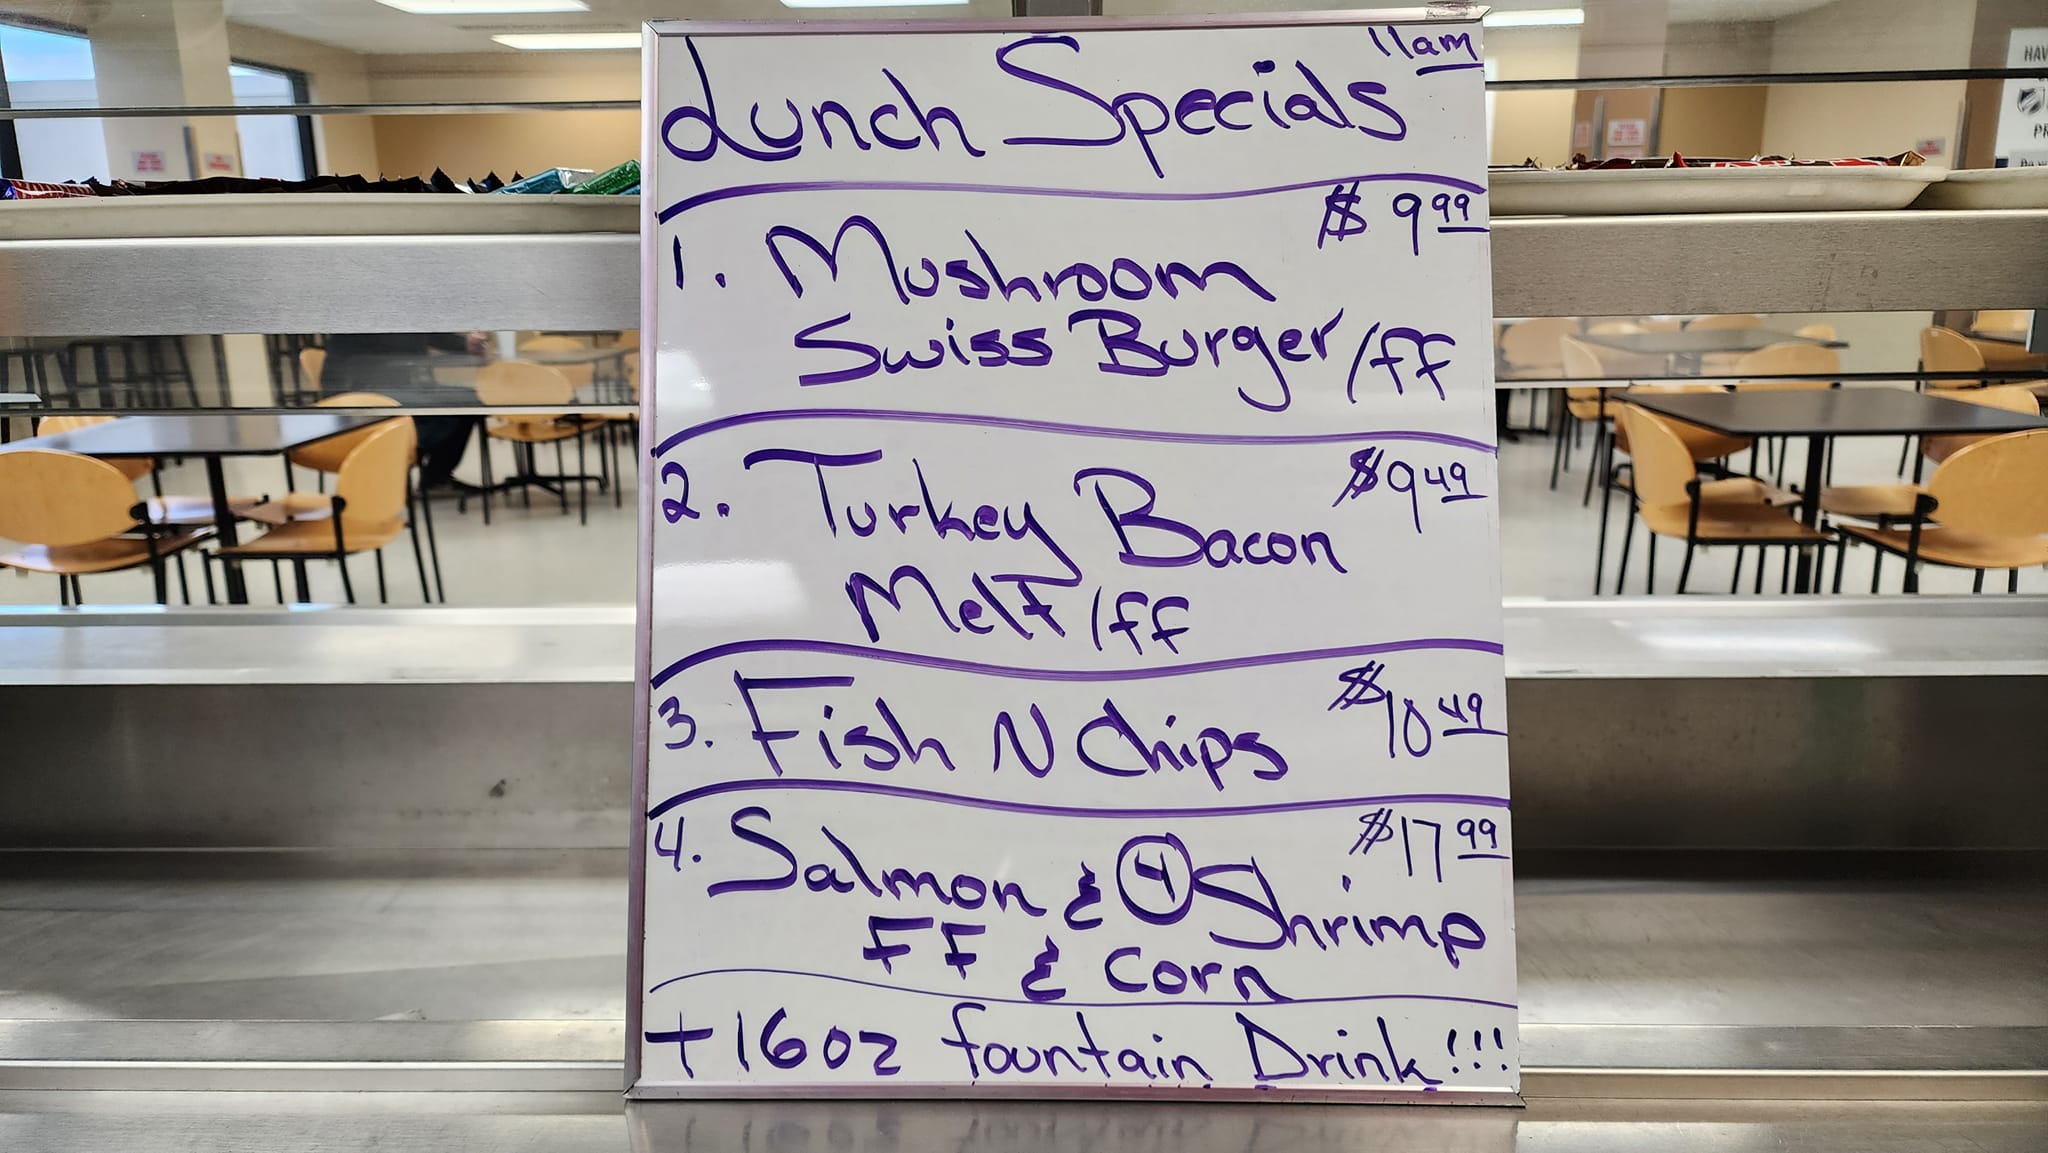 11am
Lunch Specials
$9.99
1. Mushroom
Swiss Burger/ff
2. Turkey Bacon $9.49
Melt/ff
3. Fish N Chips $10.49
4. Salmon & 4 Shrimp $17.99
FF & Corn
+ 16oz fountain Drink!!!
HAV
PR